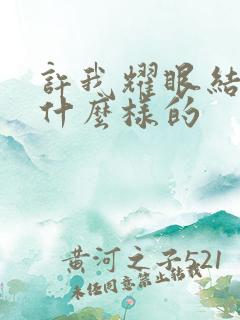 許我耀眼結
什麼樣的
黄河之子521
未经同意禁止转载